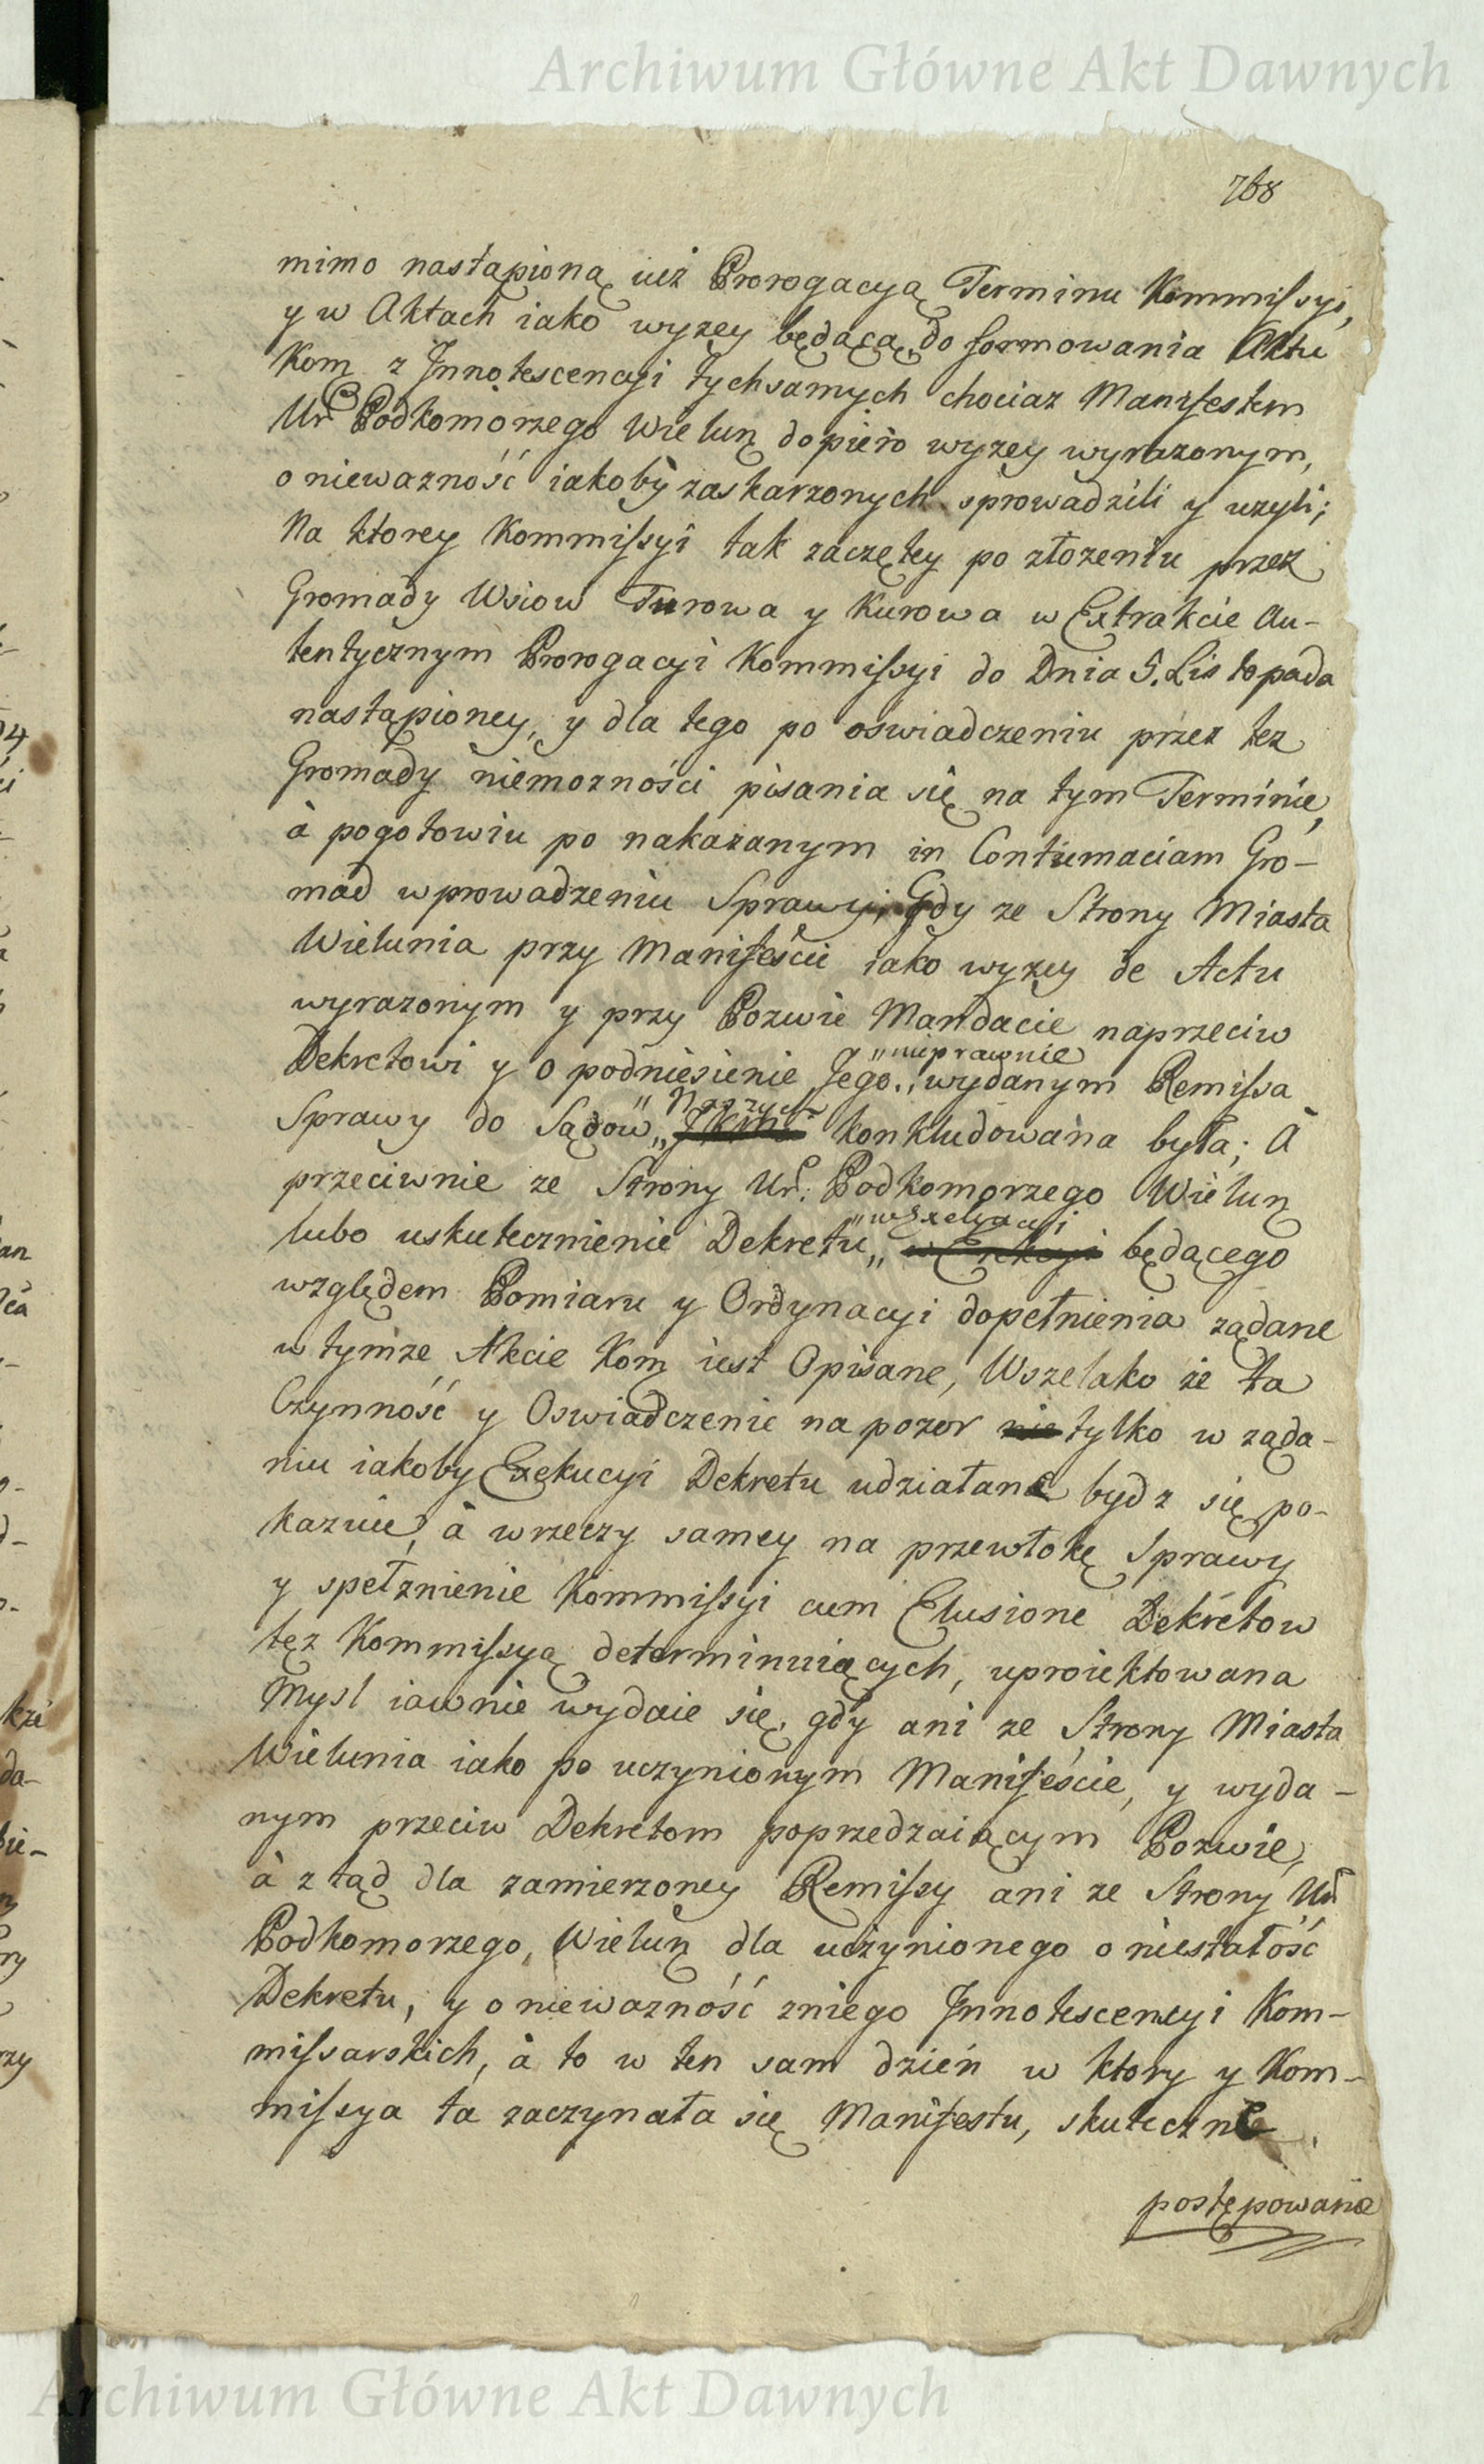 Archiwum Główne Akt Dawnych
768
mimo nastąpioną iuż Prorogacyą Terminu Kommissyi,
y w Aktach iako wyzey będącą, do formowania Aktu
Kom z Innotescencyi tychsamych chociaz Manifestem
Ur Podkomorzego Wielun dopiero wyzey wyrazonym,
o niewazność iakoby zaskarzonych sprowadzili y uzyli;
Na ktorey Kommissyi tak zaczętey po złozeniu przez
Gromady Wsiow Turowa y Kurowa w Extrakcie Au-
tentycznym Prorogacyi Kommissyi do Dnia 5. Listopada
nastąpioney, y dla tego po oswiadczeniu przez tez
Gromady niemozności pisania się na tym Terminie,
à pogotowiu po nakazanym in Contumaciam Gro-
mad wprowadzeniu Sprawy; Gdy ze Strony Miasta
Wielunia przy Manifeście iako wyzey de Actu
wyrazonym y przy Pozwie Mandacie naprzeciw
"nieprawnie
Dekretowi y o podniesienie Jego „ wydanym Remissa
" Naszych
Sprawy do Sądow „ konkludowana była; A
przeciwnie ze Strony Ur. Podkomorzego Wielun
" w Exekucyi
lubo uskutecznienie Dekretu „ będącego
względem Pomiaru y Ordynacyi dopełnienia ządane
w tymze Akcie Kom iest Opisane, Wszelako ze ta
Czynność y Oswiadczenie na pozor nie tylko w ząda-
niu iakoby Exekucyi Dekretu udziałane bydz się po-
kazuie, à w rzeczy samey na przewłokę Sprawy
y spełznienie Kommissyi cum Elusione Dekretow
tęz Kommissyą determinuiących, uproiektowana
Mysl iawnie wydaie się, gdy ani ze Strony Miasta
Wielunia iako po uczynionym Manifeście, y wyda-
nym przeciw Dekretom poprzedzaiącym Pozwie,
à ztąd dla zamierzoney Remissy ani ze Strony Ur
Podkomorzego, Wielun dla uczynionego o niestałość
Dekretu, y o niewazność zniego Innotescencyi Kom-
missarskich, à to w ten sam dzień w ktory y Kom-
missya ta zaczynała się Manifestu, skuteczne
postępowanie
Archiwum Główne Akt Dawnych